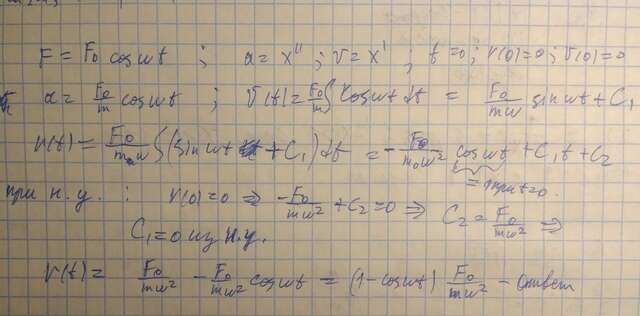 F = F₀ cosωt ; a = x'' ; v = x' ; t = 0 ; r(0) = 0 ; v(0) = 0
a = F₀/m cosωt ; v(t) = F₀/m ∫ cosωt dt = F₀/mω sinωt + C₁
r(t) = F₀/mω ∫(sinωt + C₁) dt = - F₀/mω² cosωt + C₁t + C₂
= 1 при t=0.
при н.у. : r(0) = 0 ⇒ - F₀/mω² + C₂ = 0 ⇒ C₂ = F₀/mω² ⇒
C₁ = 0 из н.у.
r(t) = F₀/mω² - F₀/mω² cosωt = (1 - cosωt) F₀/mω² - ответ